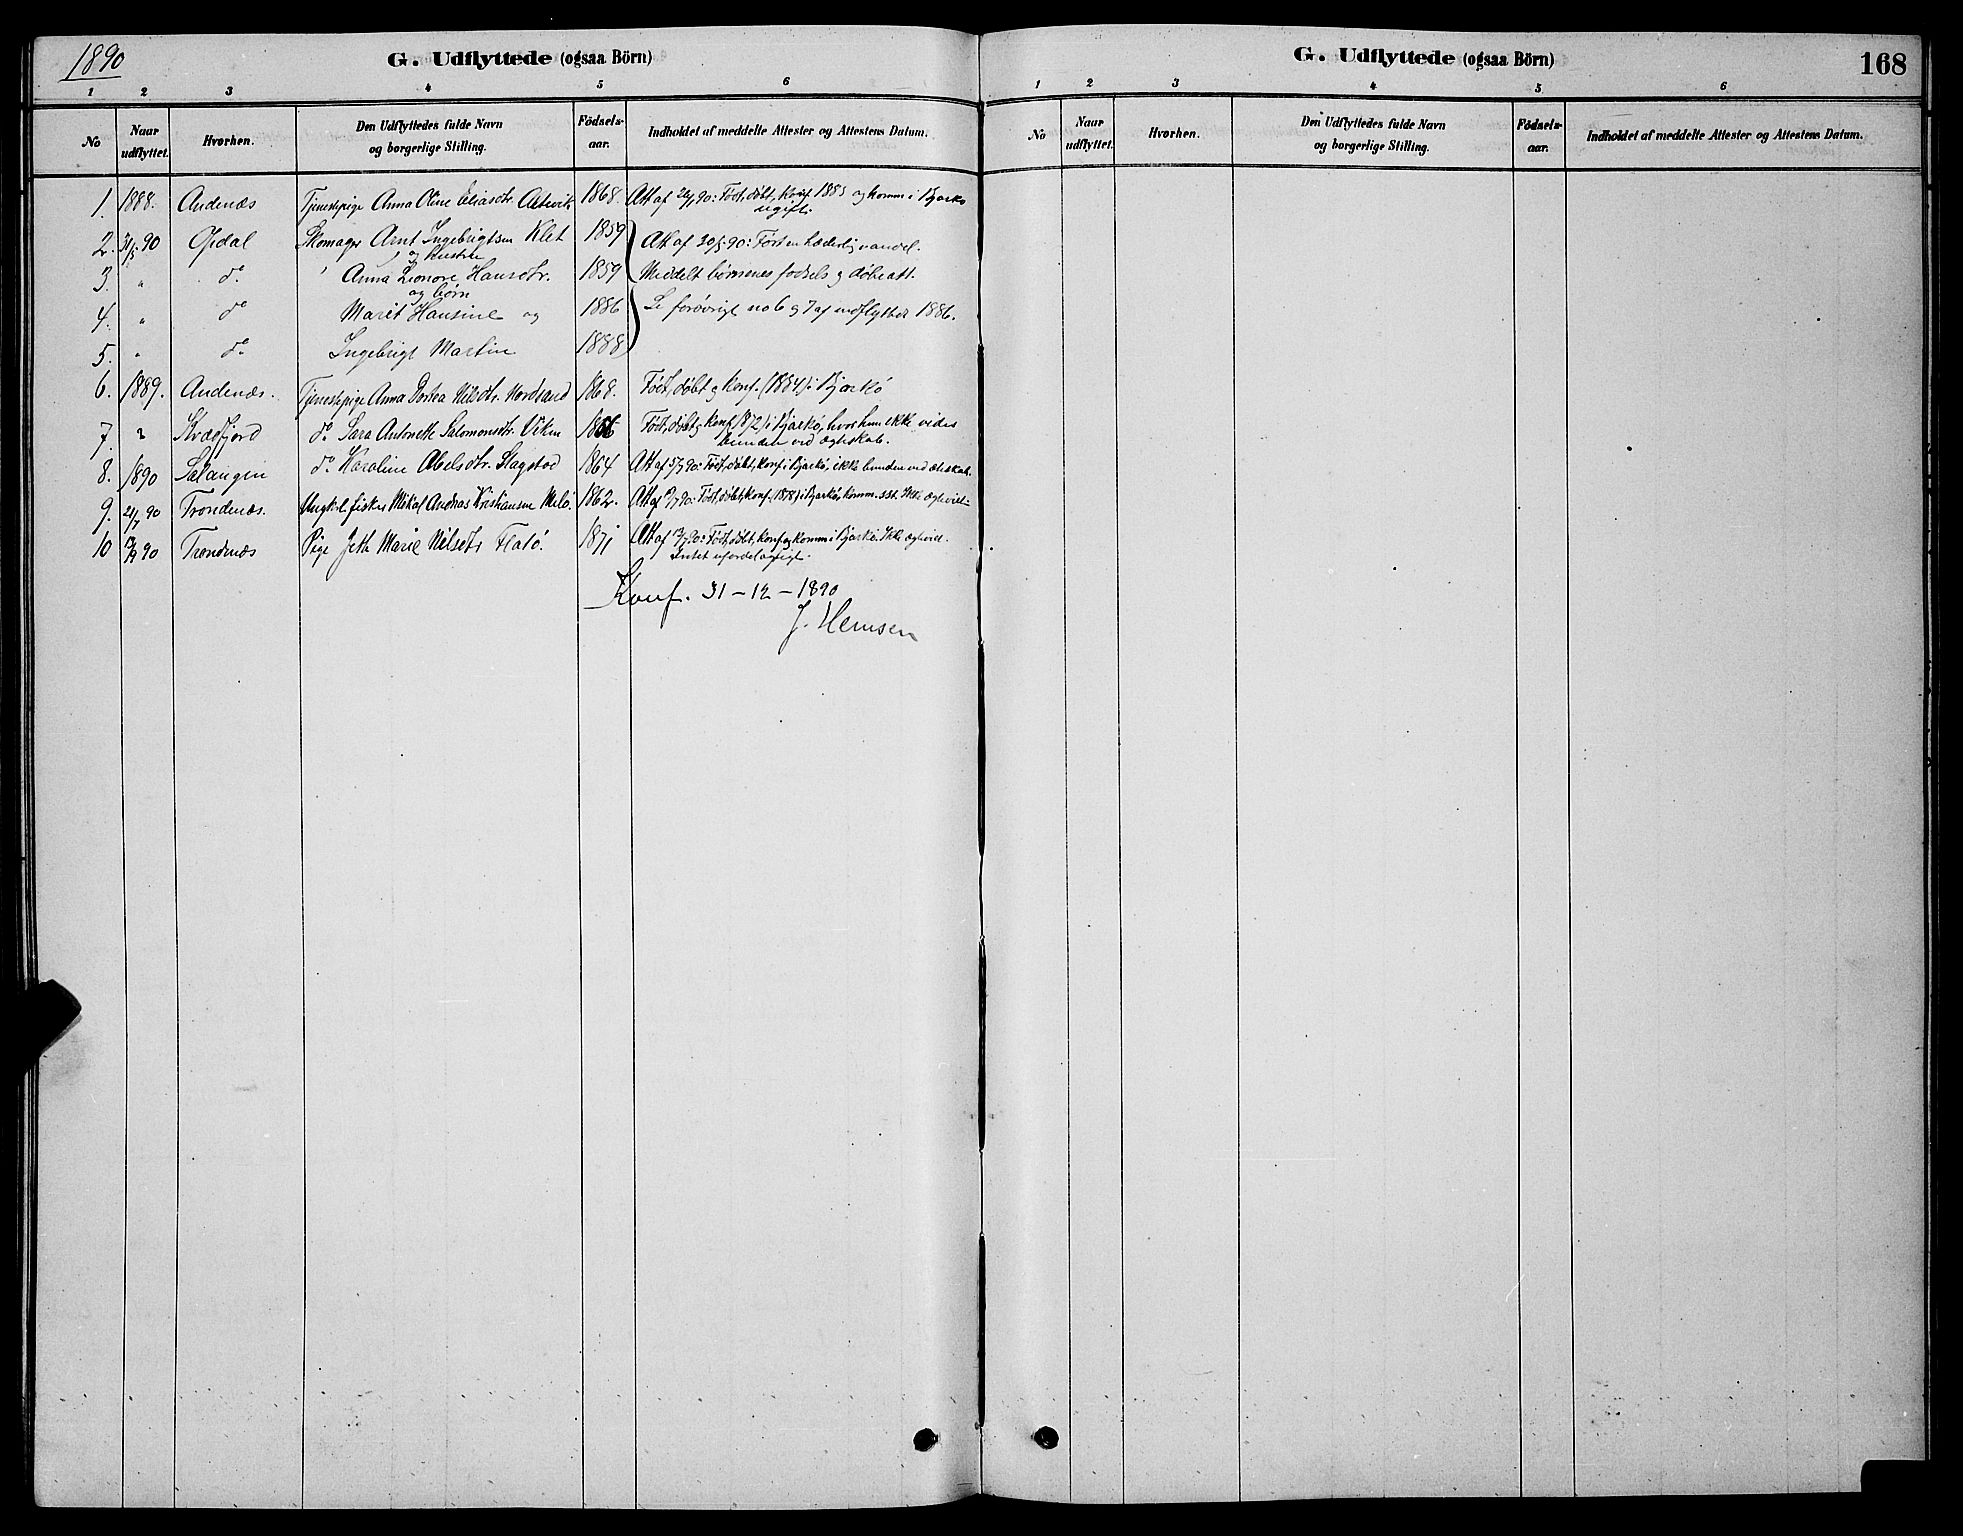 1890
G. Udflyttede (ogsaa Börn)
1 2 3 4 5 6
No Naar udflyttet. Hvorhen. Den Udflyttedes fulde Navn og borgerlige Stilling. Födsels-aar. Indholdet af meddelte Attester og Attestens Datum.
1. 1888. Andenæs Tjenestepige Anna Oline Eliasdtr. 1868. Att af 90: Født, døbt, konf. 1883 og komm i Bjarkø
ugift.
2. 31/5 90 Opdal Skomager Arnt Ingebrigtsen Klet 1859 Att af 30/5 90: Ført en hæderlig vandel.
og Hustru
3. " do. Anna Leonore Hansdtr. 1859 Meddelt børnenes fødsels og døbeatt.
og børn
4. " do Marit Hansine og 1886 Se forøvrigt no 6 og 7 af indflyttede 1886.
5. " do. Ingebrigt Martin 1888
6. 1889. Andenæs. Tjenestepige Anna Dortea Nilsdtr. Nordsand 1868. Født, døbt og konf. (1884) i Bjarkø
7. " Kvædfjord do Sara Antonette Salomonsdtr. Viken 1856 Født, døbt og konf (1872) i Bjarkø, hvor hun ikke vides
bunden ved ægteskab.
8. 1890 Salangen do Karoline Abelsdtr. Slagstad 1864 Att af 5/7 90: Født, døbt, konf i Bjarkø, ikke bunden ved ægteskab.
9. 21/7 90 Trondenæs. Ungkarl fisker Mikal Andreas Kristiansen Melø. 1862. Att af 90: Født, døbt, konf. (1878) i Bjarkø, komm. sst. Ikke ægteviet.
10 90 Trondenæs Pige Marie Nilsdtr Flatø. 1871 Att af 90: Født, døbt, konf og komm i Bjarkø. Ikke ægteviet.
Intet ufordelagtigt.
Konf. 31-12-1890
J. Hemsen
G. Udflyttede (ogsaa Börn)
168
1 2 3 4 5 6
No Naar udflyttet. Hvorhen. Den Udflyttedes fulde Navn og borgerlige Stilling. Födsels-aar. Indholdet af meddelte Attester og Attestens Datum.